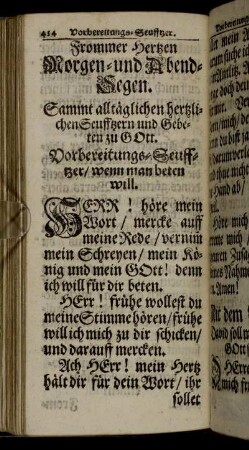 414 Vorbereitungs-Seufftzer.
Frommer Hertzen
Morgen- und Abend-
Segen.
Sammt alltäglichen hertzli-
chen Seufftzern und Gebe-
ten zu GOtt.
Vorbereitungs-Seuff-
tzer/ wenn man beten
will.
HERR! höre mein
Wort/ mercke auff
meine Rede/ vernim
mein Schreyen/ mein Kö-
nig und mein GOtt! denn
ich will für dir beten.
HErr! frühe wollest du
meine Stimme hören/ frühe
will ich mich zu dir schicken/
und darauff mercken.
Ach HErr! mein Hertz
hält dir für dein Wort/ ihr
sollet